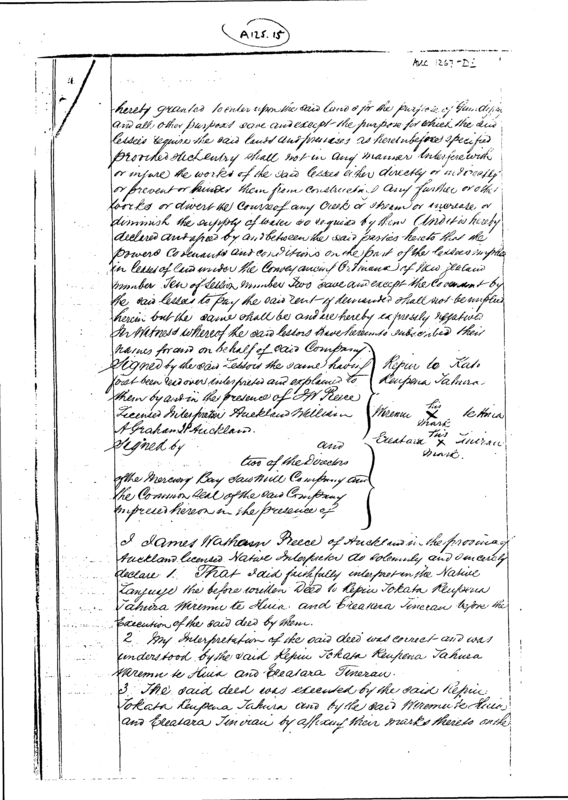 A125.15
hereby granted to enter upon the said lands for the purpose of Gumdigging
and all other purposes save and except the purpose for which the said
lessees require the said lands and premises as hereinbefore specified
provided such entry shall not in any manner interfere with
or injure the works of the said lessees either directly or indirectly
or prevent or hinder them from constructing any further or other
works or divert the course of any creek or stream or increase or
diminish the supply of water so required by them And it is hereby
declared and agreed by and between the said parties hereto that the
powers covenants and conditions on the part of the lessees implied
in leases of land under the Conveyancing Ordinance of New Zealand
number Ten of Session number Two save and except the Covenant by
the said lessees to pay the said rent if demanded shall not be implied
herein but the same shall be and are hereby expressly negatived
In Witness whereof the said lessors have hereunto subscribed their
names for and on behalf of said Company.
Signed by the said Lessors the same having
first been read over interpreted and explained to
them by and in the presence of J W Preece
Licensed Interpreter Auckland William
A Graham Auckland.
Repiu to Kato
Reupena Tahura
his
Wiremu X te Huia
mark
his
Ereatara X Tinerau
mark.
Signed by and
two of the Directors
of the Mercury Bay Saw Mill Company and
the Common Seal of the said Company
impressed hereon in the presence of
I James Wathan Preece of Auckland in the province of
Auckland licensed Native Interpreter do solemnly and sincerely
declare 1. That I did faithfully interpret in the Native
Language the before written Deed to Repiu Tokata Reupena
Tahura Wiremu te Huia and Ereatara Tinerau before the
Execution of the said deed by them.
2. My Interpretation of the said deed was correct and was
understood by the said Repiu Tokata Reupena Tahura
Wiremu te Huia and Ereatara Tinerau.
3. The said deed was executed by the said Repiu
Tokata Reupena Tahura and by the said Wiremu te Huia
and Ereatara Tinerau by affixing their marks thereto on the